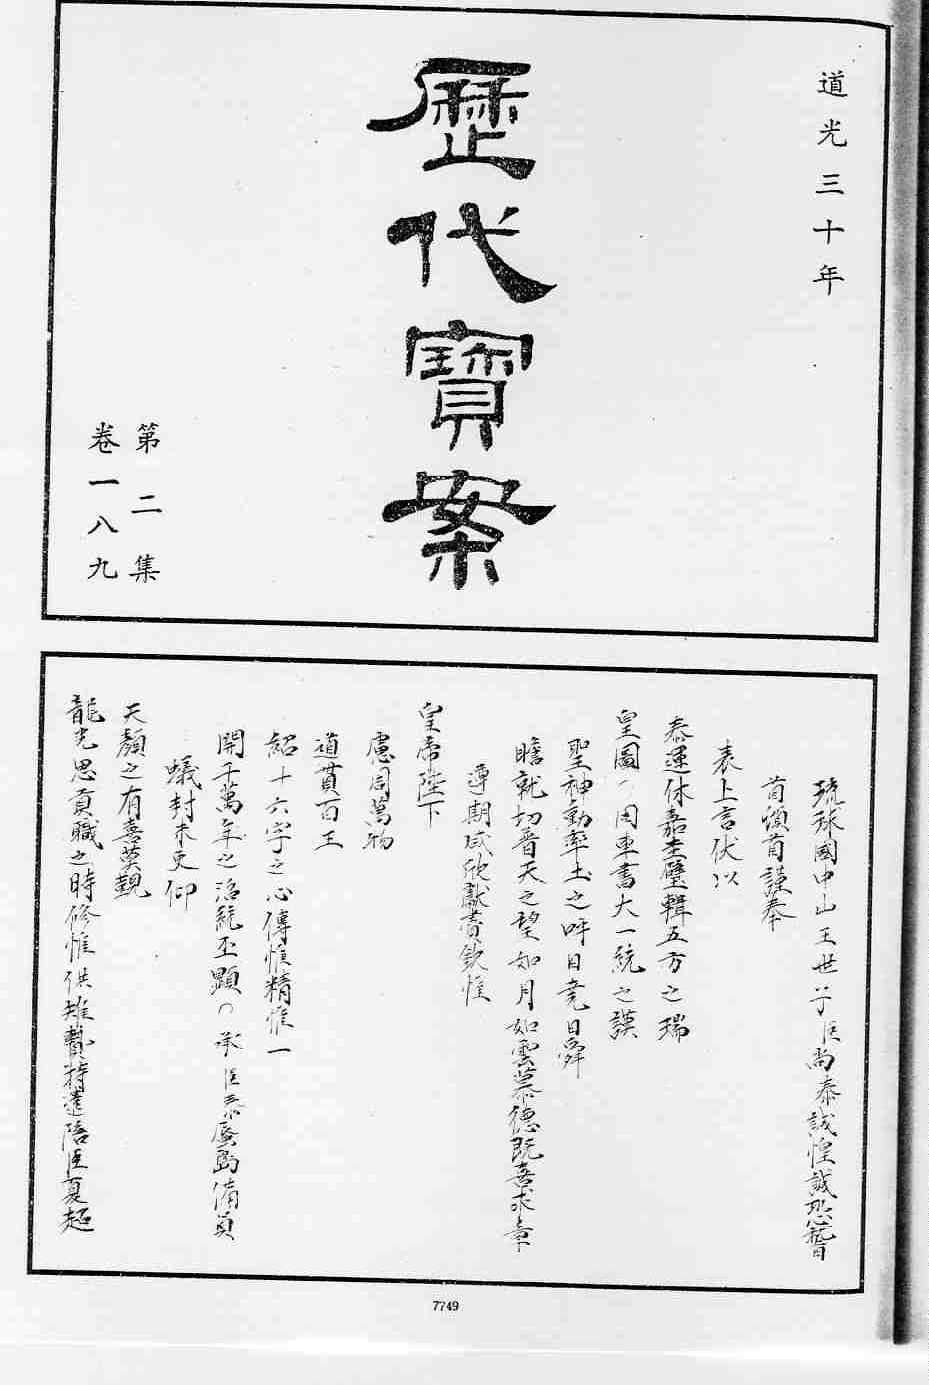 道光三十年
歷代寶案
第二集
卷一八九
琉球國中山王世子臣尚泰誠惶誠恐稽
首頓首謹奉
表上言伏以
泰運休嘉圭璧輯五方之瑞
皇圖 車書大一統之謨
聖神勳率土之呼日堯日舜
瞻就切普天之望如月如雲慕德既喜求章
遵期咸欣獻賮欽惟
皇帝陛下
慮周萬物
道貫百王
紹十六字之心傳惟精惟一
開千萬年之治統丕顯 承臣泰蜃島備員
蟻封未交仰
天顏之有喜莫覲
龍光思貢職之時修惟供雉贄特遣陪臣夏超
7749